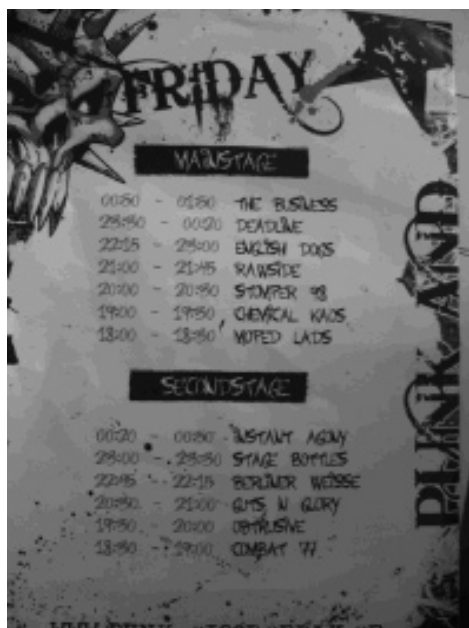 FRIDAY
MAINSTAGE
00:50 - 01:50 THE BUSINESS
23:30 - 00:20 DEADLINE
22:15 - 23:00 ENGLISH DOGS
21:00 - 21:45 RAWSIDE
20:00 - 20:30 STOMPER 98
19:00 - 19:30 CHEMICAL KAOS
18:00 - 18:30 MOPED LADS
SECONDSTAGE
00:20 - 00:50 INSTANT AGONY
23:00 - 23:30 STAGE BOTTLES
22:45 - 22:15 BERLINER WEISSE
20:30 - 21:00 GUTS N GLORY
19:30 - 20:00 OBTRUSIVE
18:30 - 19:00 COMBAT 77
PUNK AND